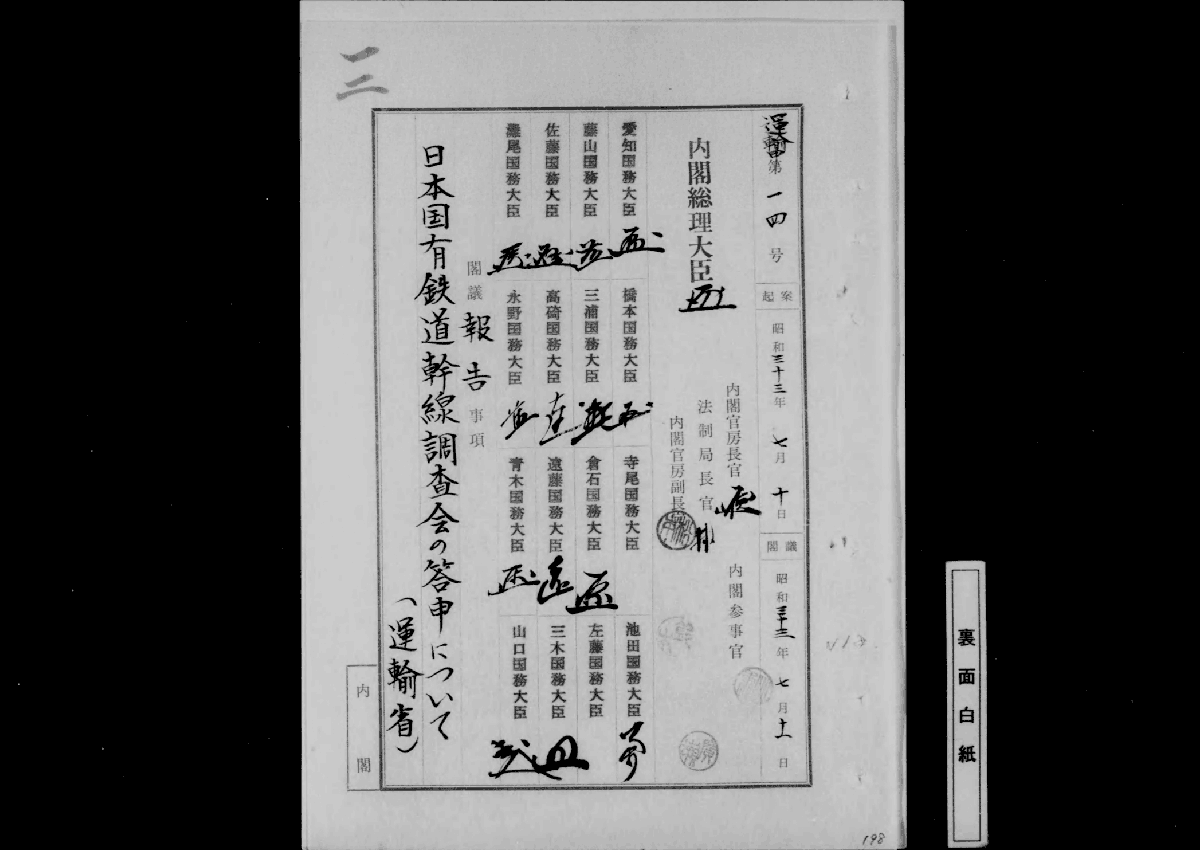 一二
運輸甲第一四号
起案
昭和三十三年七月十日
閣議
昭和三十三年七月十一日
内閣総理大臣
内閣官房長官
法制局長官
内閣官房副長官
内閣参事官
愛知国務大臣
橋本国務大臣
寺尾国務大臣
池田国務大臣
藤山国務大臣
三浦国務大臣
倉石国務大臣
左藤国務大臣
佐藤国務大臣
高碕国務大臣
遠藤国務大臣
三木国務大臣
灘尾国務大臣
永野国務大臣
青木国務大臣
山口国務大臣
閣議報告事項
日本国有鉄道幹線調査会の答申について
(運輸省)
内閣
198
裏面白紙